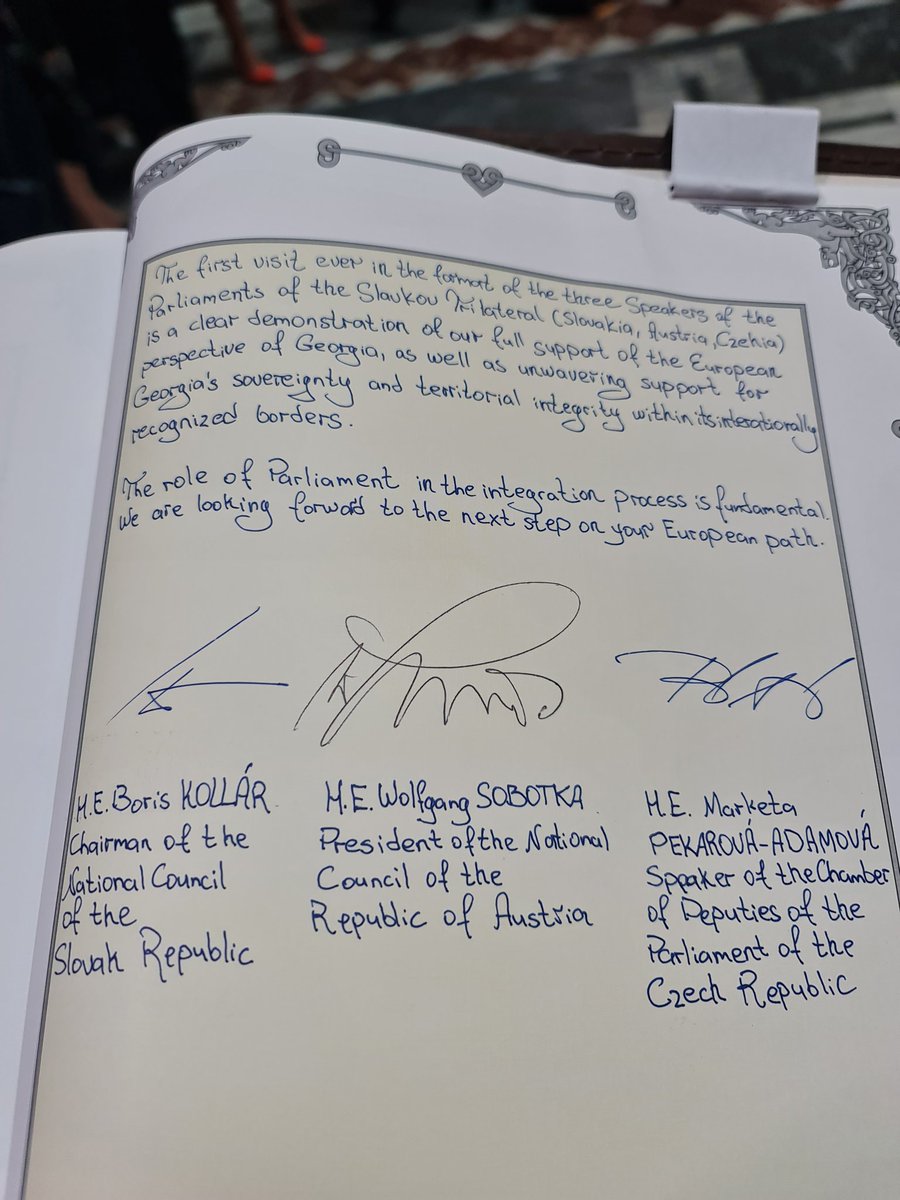 The first visit ever in the format of the three Speakers of the
Parliaments of the Slavkov Trilateral (Slovakia, Austria, Czehia)
is a clear demonstration of our full support of the European
perspective of Georgia, as well as unwavering support for
Georgia's sovereignty and territorial integrity within its interationally
recognized borders.
The role of Parliament in the integration process is fundamental.
We are looking forward to the next step on your European path.
H.E. Boris KOLLÁR
Chairman of the
National Council
of the
Slovak Republic
H.E. Wolfgang SOBOTKA
President of the National
Council of the
Republic of Austria
H.E. Marketa
PEKAROVÁ-ADAMOVÁ
Speaker of the Chamber
of Deputies of the
Parliament of the
Czech Republic